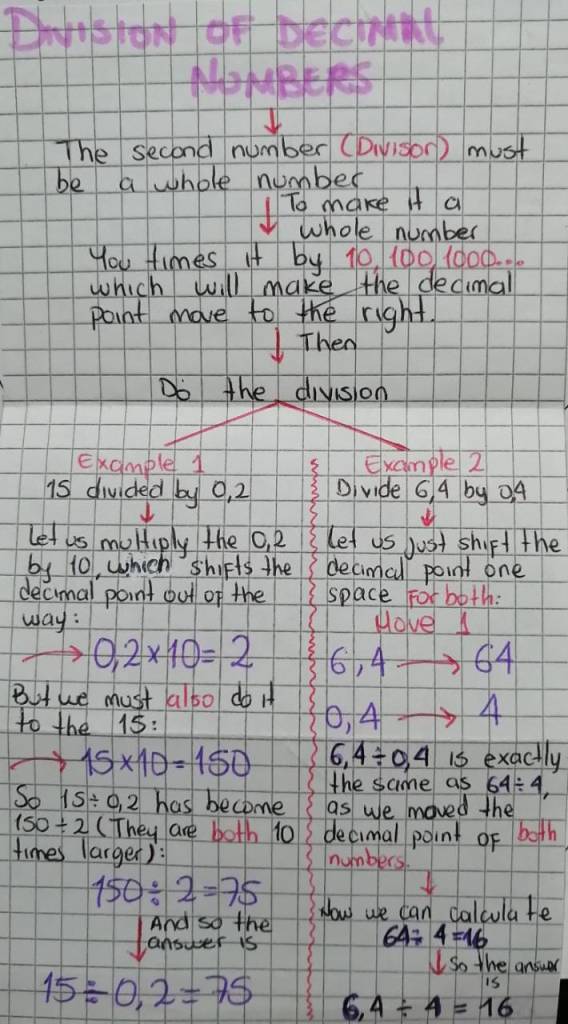 DIVISION OF DECIMAL
NUMBERS
The second number (Divisor) must
be a whole number
To make it a
whole number
You times it by 10, 100, 1000...
which will make the decimal
point move to the right.
Then
Do the division
Example 1
15 divided by 0,2
Let us multiply the 0,2
by 10, which shifts the
decimal point out of the
way:
0,2×10= 2
But we must also do it
to the 15:
15×10=150
So 15÷0,2 has become
150÷2 (They are both 10
times larger):
150÷2=75
And so the
answer is
15÷0,2=75
Example 2
Divide 6,4 by 0,4
Let us just shift the
decimal point one
space For both:
Move 1
6,4 → 64
0,4 → 4
6,4÷0,4 is exactly
the same as 64÷4,
as we moved the
decimal point of both
numbers.
Now we can calculate
64÷4=16
So the answer
is
6,4÷4=16